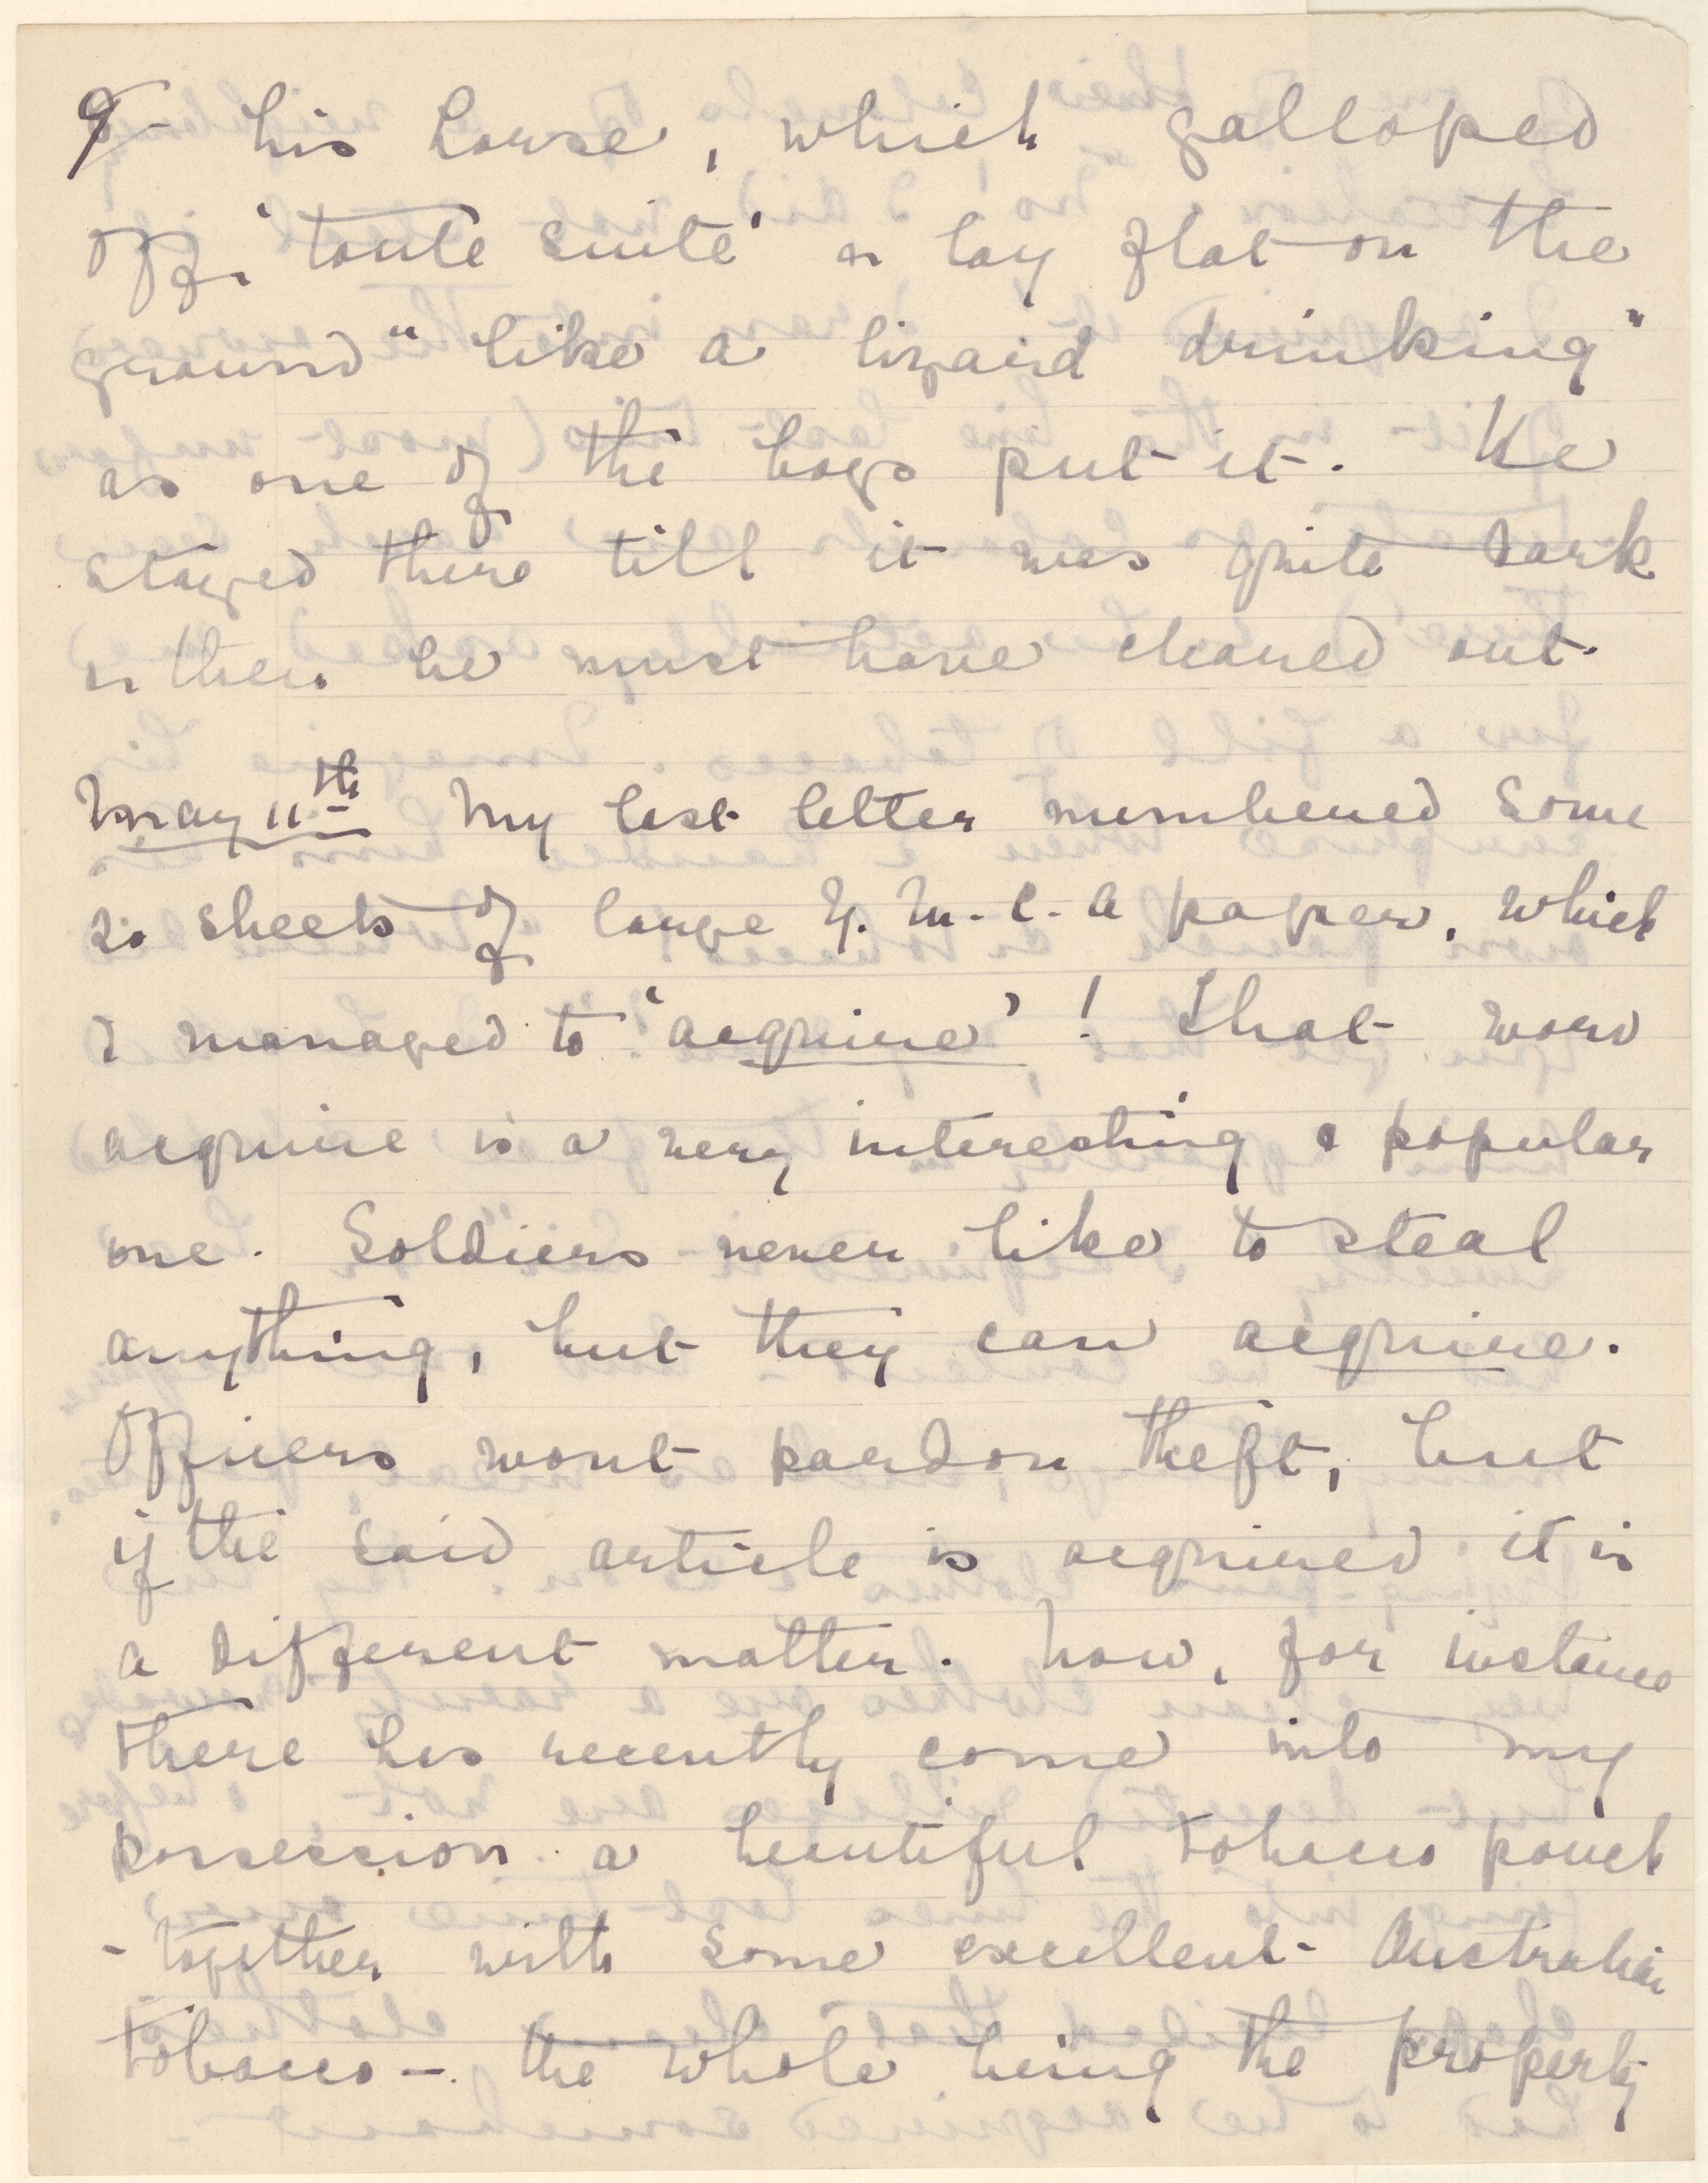 9/- his horse, which galloped
off, 'toute suite' & lay flat on the
ground "like a lizard drinking"
as one of the boys put it. He
stayed there till it was quite dark
& then he must have cleared out.
May 11th My last letter numbered some
20 sheets of large Y.M.C.A paper, which
I managed to 'acquire'! That word
acquire is a very interesting & popular
one. Soldiers never like to steal
anything, but they can acquire.
Officers wont pardon theft, but
if the said article is acquired it is
a different matter. Now, for instance
there has recently come into my
possession a beautiful tobacco pouch
- together with some excellent Australian
tobacco -. the whole being the property